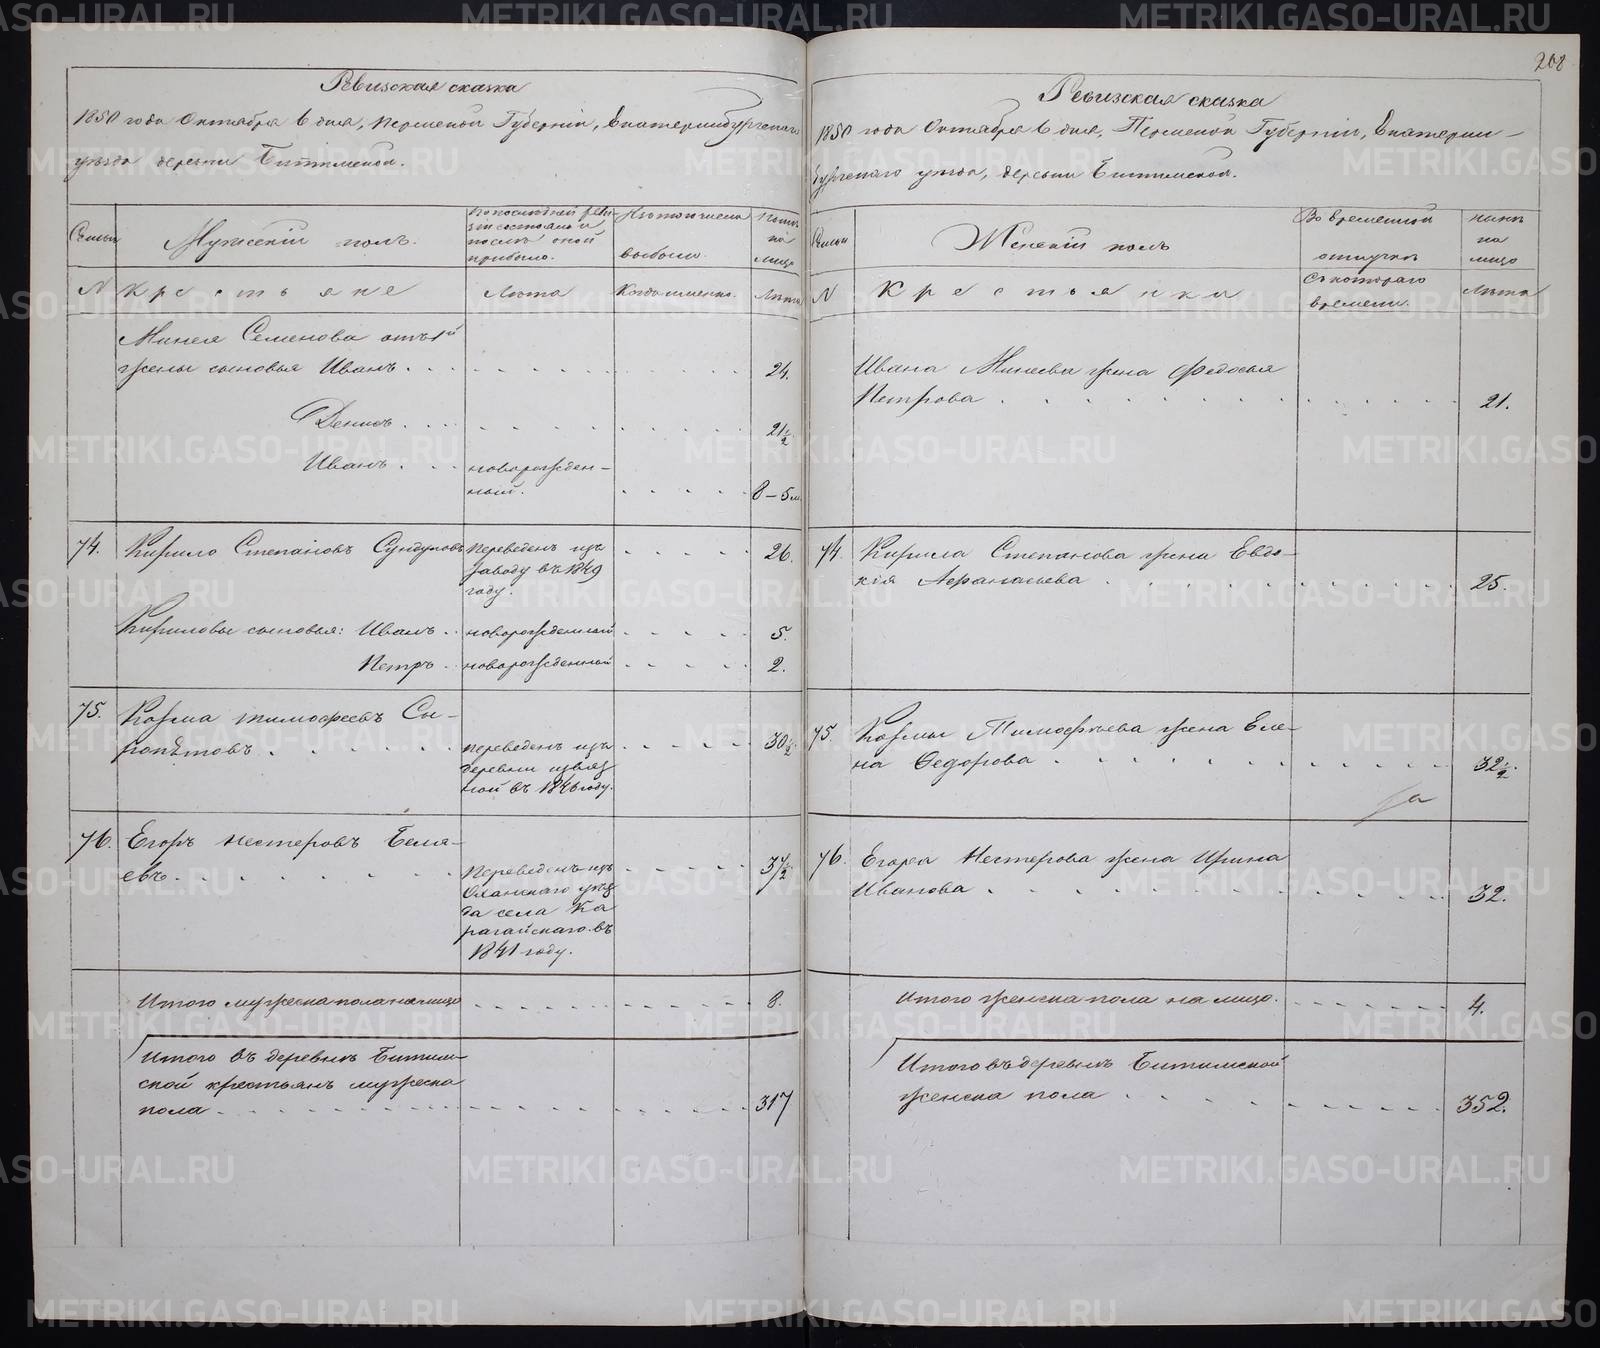 Ревизская сказка
1850 года Октября 6 дня, Пермской Губернiи, Екатеринбургскаго
уѣзда деревни Битимской.
Семьи
Мужескiй полъ.
По последней реви-
зiи состояло и
послѣ оной
прибыло.
Изъ того числа
выбыло.
Нынѣ
на
лицо
N
Крестьяне
Лѣта
Когда именно.
Лѣта
Минея Семенова отъ 1й
жены сыновья Иванъ . . . 24.
Денисъ . . . 21½
Иванъ . . . новорожден-
ный. . . . 8 – 5 м
74. Кирило Степановъ Сундуковъ Переведенъ изъ . . . 26.
заводу въ 1849
году.
Кириловы сыновья: Иванъ . . новорожденный . . . 5.
Петръ . новорожденный . . . 2.
75. Козма Тимофеевъ Си-
ропѣтовъ . . . переведенъ изъ . . . 30½.
деревни извяз
ной въ 1846 году.
76. Егоръ Нестеровъ Беля-
евъ . . . Переведенъ изъ . . . 37½
Оханскаго уѣз
да села Ка
рагайскаго въ
1841 году.
Итого мужеска пола на лицо . . . 8.
Итого въ деревнѣ Битим-
ской крестьянъ мужеска
пола . . . 317
208
Ревизская сказка
1850 года Октября 6 дня, Пермской Губернiи, Екатерин-
бургскаго уѣзда, деревни Битимской.
Семьи
Женскiй полъ
Во временной
отлучкѣ
нынѣ
на
лицо
N
Крестьянки
Съ котораго
времени.
Лѣта
Ивана Минеева жена Федосья
Петрова . . . 21.
74. Кирила Степанова жена Евдо-
кiя Афанасьева . . . 25.
75. Козмы Тимофѣева жена Еле-
на Ѳедорова . . . 32½.
76. Егора Нестерова жена Ирина
Иванова . . . 32.
Итого женска пола на лицо. . . . 4.
Итого въ деревнѣ Битимской
женска пола . . . 352.
METRIKI.GASO-URAL.RU